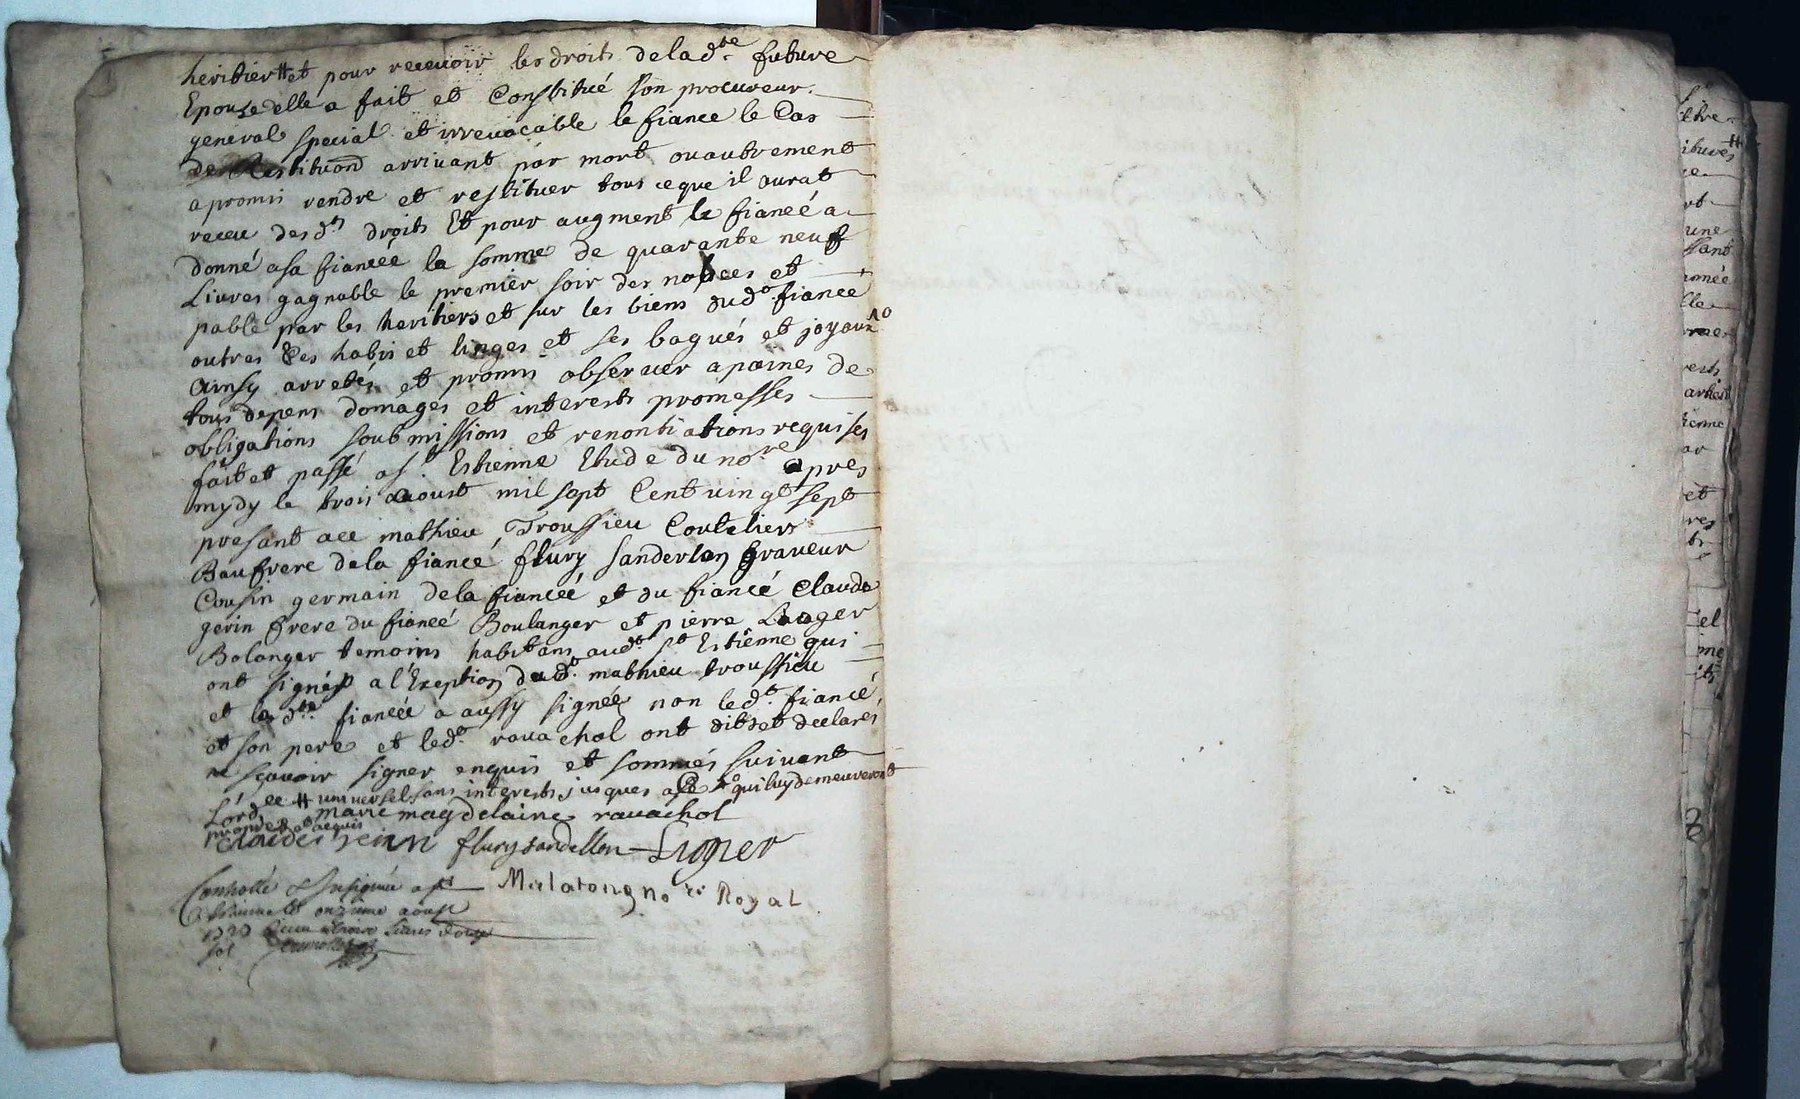 heritier # et pour recevoir les droits de la dte future
Epouse elle a fait et Constitué son procureur
general special et irrevocable le fiance le Cas
de Restituõn arrivant par mort ou autrement
a promis rendre et restituer tous ce que il aurat
receu des dts droits Et pour augment le fiancé a
donné a sa fiancée la somme de quarante neuf
Livres gagnable le premier soir des nopces et
pable par les heritiers et sur les biens dud. fiancé
outres Ses habis et linges et ses bagués et joyaux
Ainsy arretés et promis observer a paines de
tous depens domages et interests promesses
obligations soubmissions et renontiations requises
fait et passé a St. Estienne Etude du nore apres
mydy le trois aoust mil sept Cent vingt sept
presant ace mathieu Troussieu Coutelier
Baufrere de la fiancé flury Sanderlon graveur
Cousin germain de la fiancée et du fiancé Claude
gerin frere du fiancé Boulanger et pierre
Bolonger temoins habitans aud. St Estienne qui
ont signés a l'Exeption dud. mathieu troussieu
et la dte fiancée a aussy signée non led. fiancé
et son pere et led. ravachol ont dits et declarés
ne sçavoir signer enquis et sommés suivant
L'ordce # universel sans interests jusques a qui luy demeureront
propres et acquis
marie magdelaine ravachol
Claude gerin flury sandellon
Controllé & Insinué a St
Estienne le onzieme aoust
sol
no re Royal